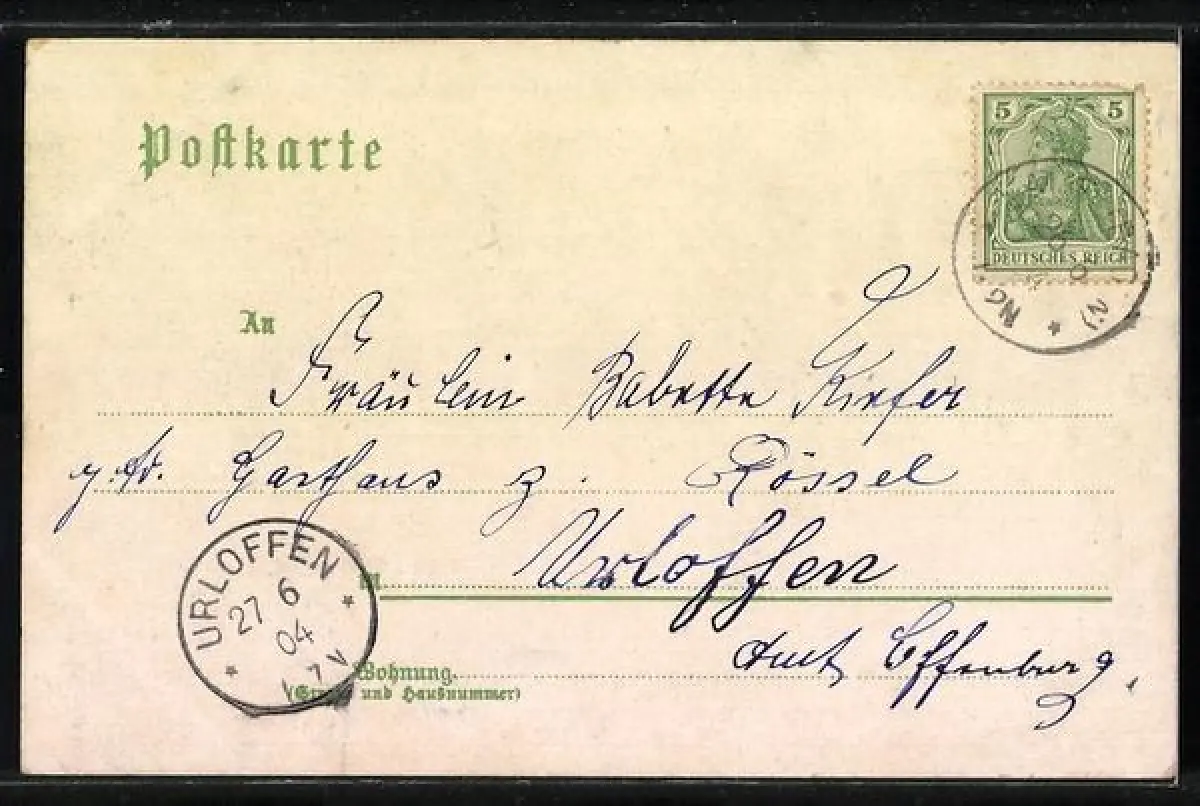 Postkarte
5 5
DEUTSCHES REICH
An
Fräulein Babette Kiefer
Gasthaus z. Rössel
in Urloffen
Amt Offenburg.
Wohnung.
und Hausnummer)
URLOFFEN
27 6
04
7 V